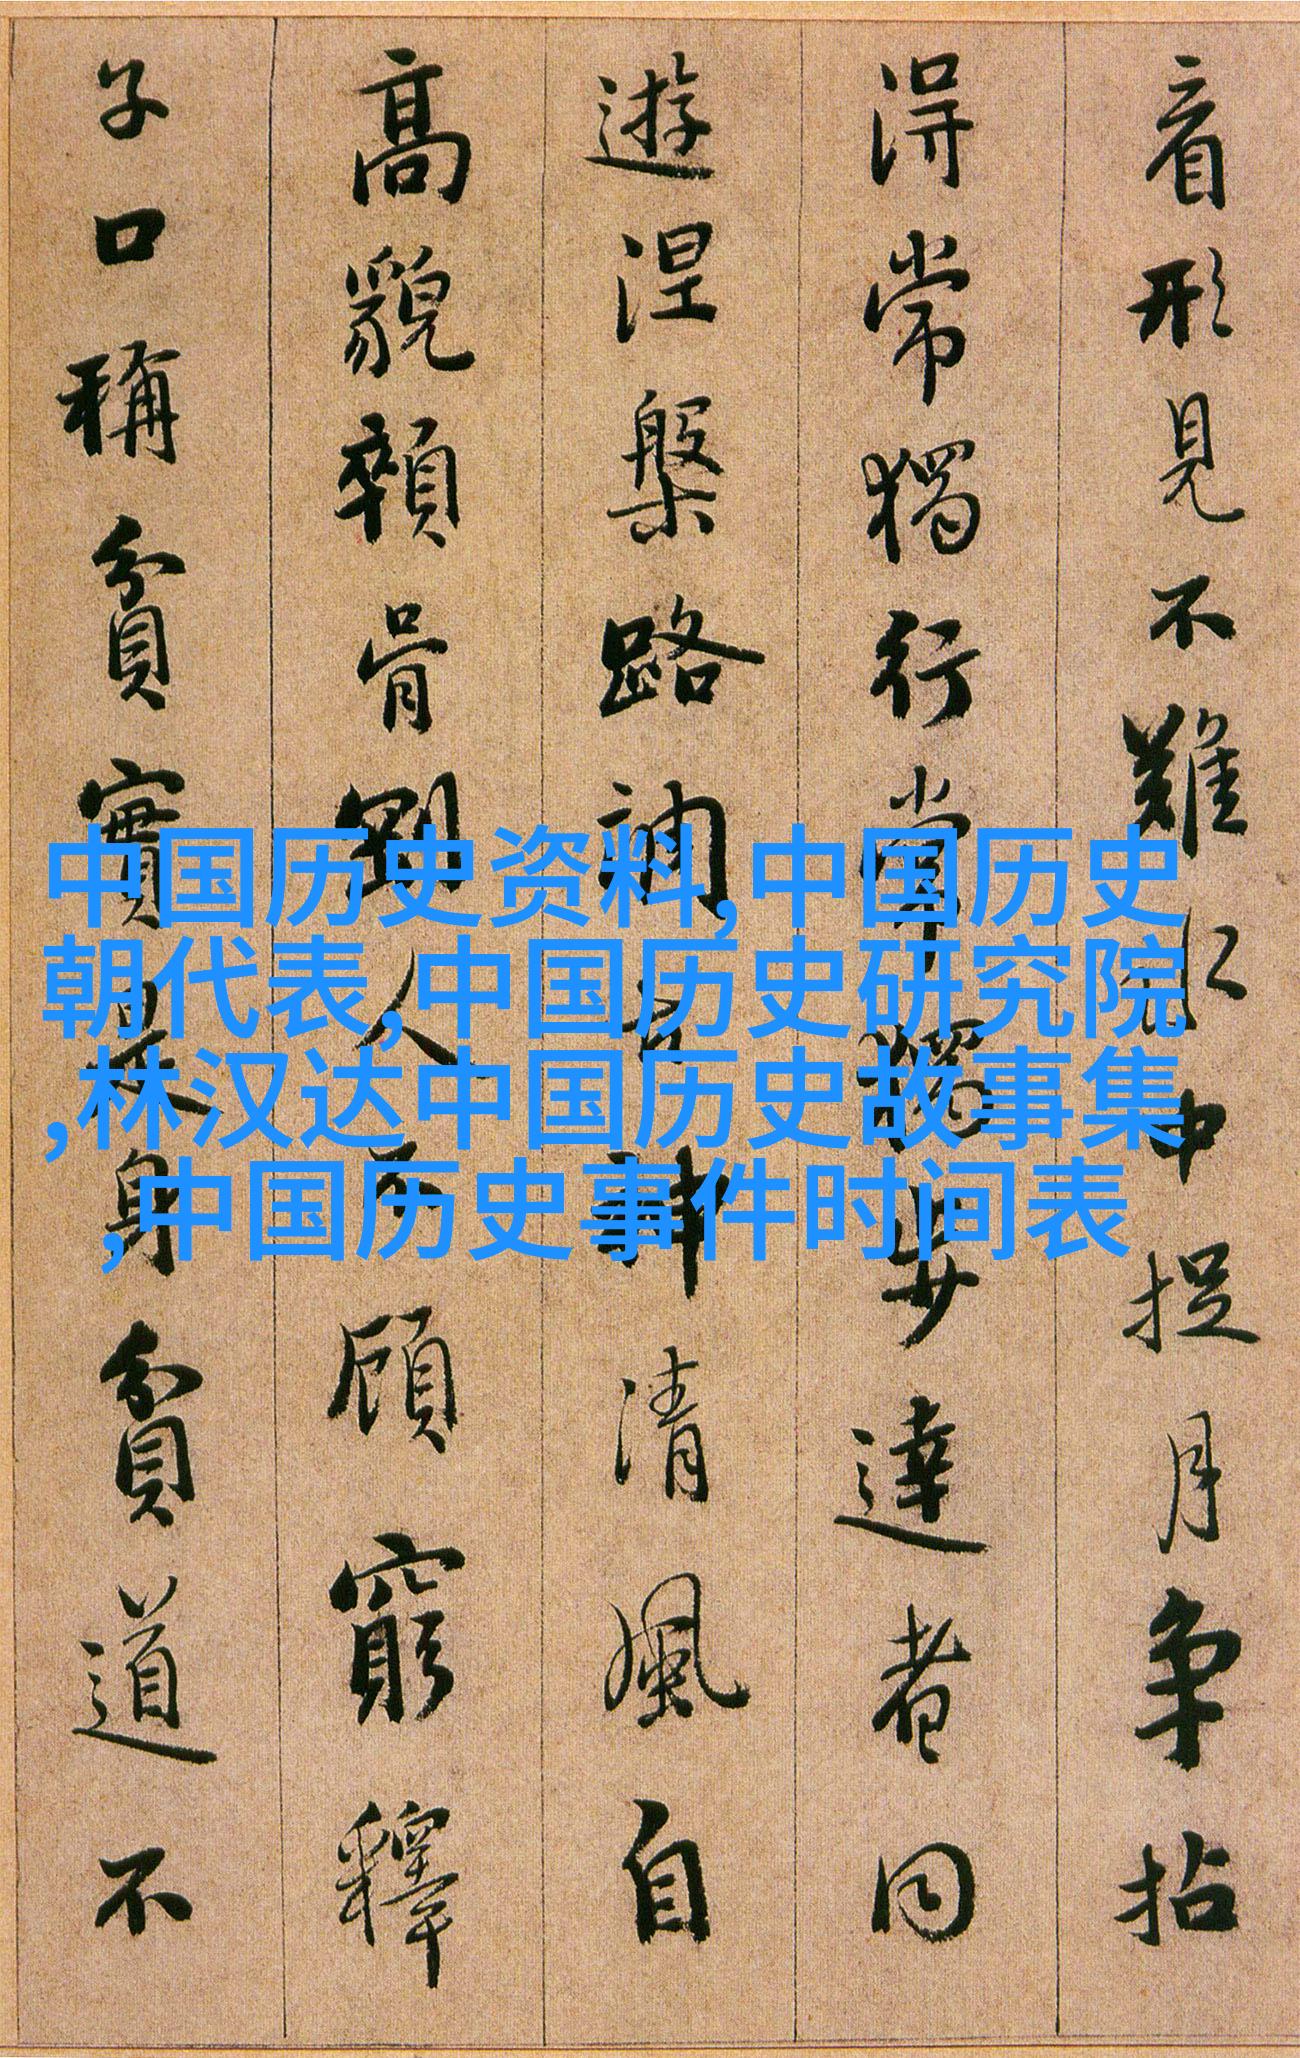 看形見不難水中捉月爭拈
得常獨行常獨步達者同
遊涅槃路調古神清風自
高貌顇骨剛人不顧窮釋
子口稱貧實是身貧道不
中国历史资料,中国历史
朝代表,中国历史研究院
,林汉达中国历史故事集
,中国历史事件时间表